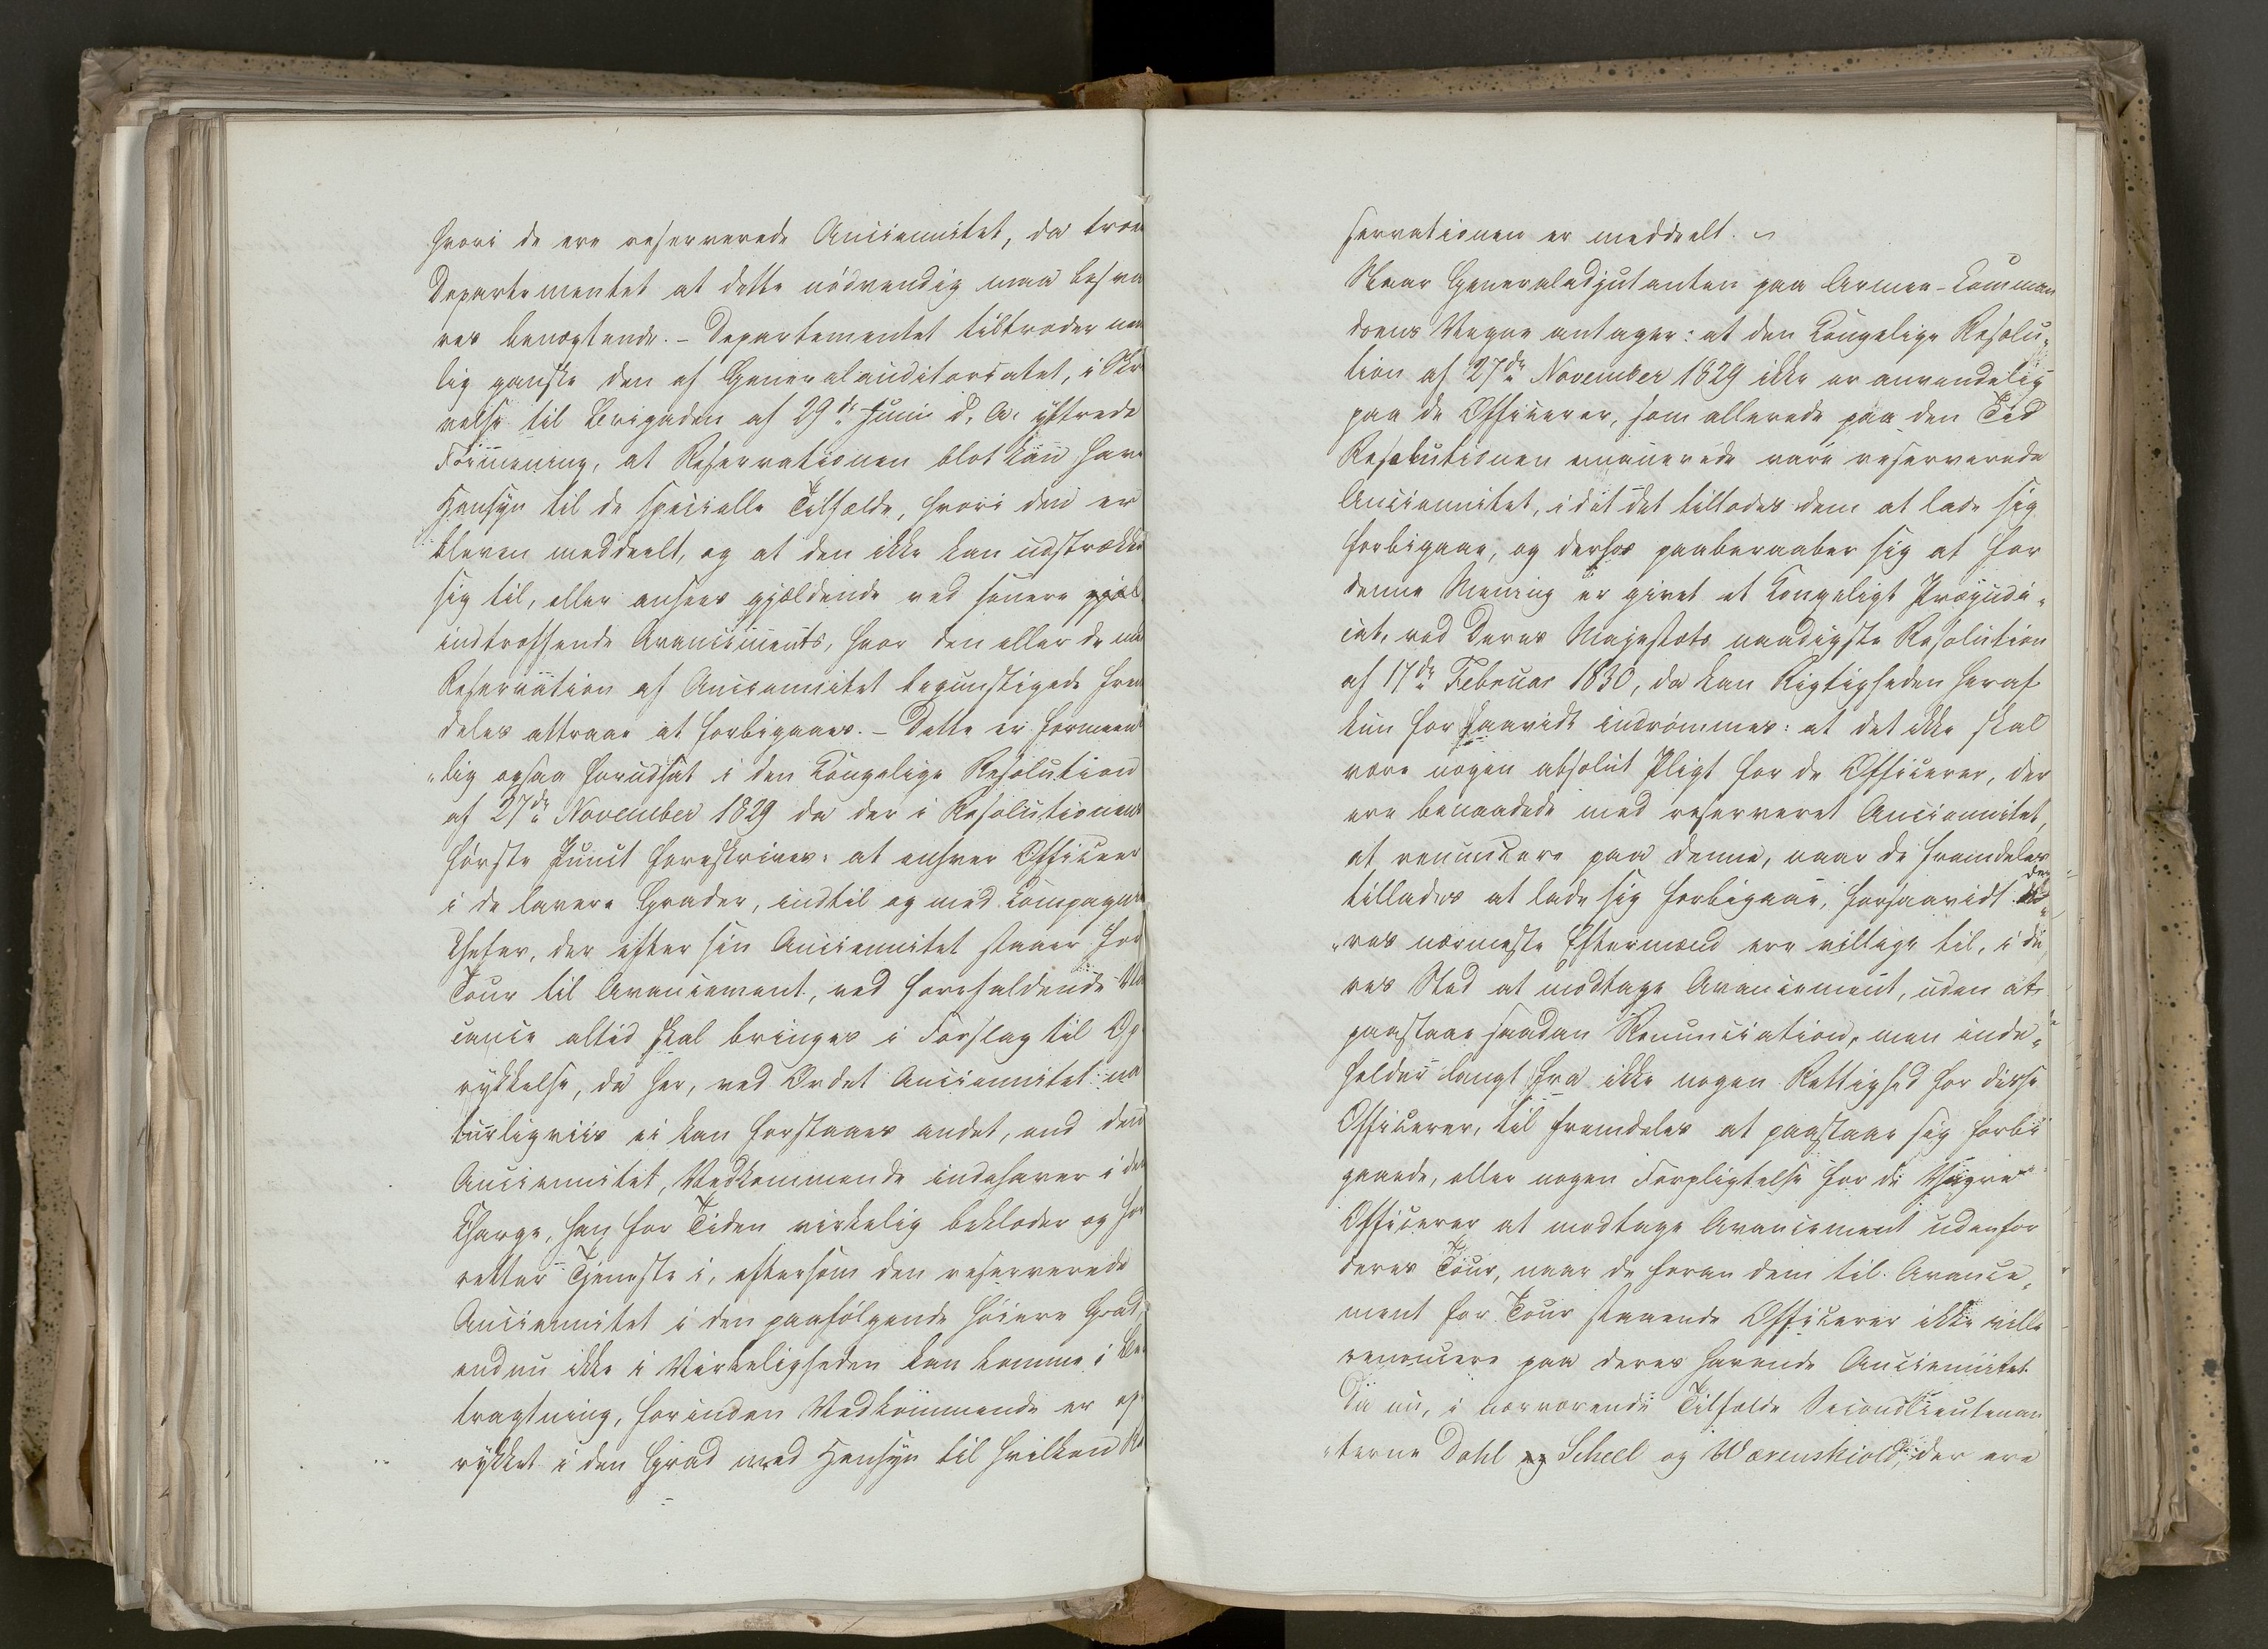 hvori de ere reserverede Anciennitet, da troer
Departementet at dette nödvendig maa besva
res benægtende. – Departementet tiltræder nem
lig ganske den af Generalauditoriatet, i Skri
velse til Brigaden af 29de Juni d. A. yttrede
Formening, at Reservationen blot kan have
Hensyn til de specielle Tilfælde, hvori den er
bleven meddeelt, og at den ikke kan udstrækkes
sig til, eller ansees gjældende ved senere
indtræffende Avancements, hvor den eller de med
Reservation af Anciennitet begunstigede frem
deles attraae at forbigaaes. – Dette er formeent
„lig ogsaa forudsat i den Kongelige Resolution
af 27de November 1829 da der i Resolutionens
förste Punct foreskrives: at enhver Officeer
i de lavere Grader, indtil og med Compagnie
Chefer, der efter sin Anciennitet staaer for
Tour til Avancement, ved forefaldende Va
cance altid skal bringes i Forslag til Op
rykkelse, da her, ved Ordet Anciennitet na
turligviis ei kan forstaaes andet, end den
Anciennitet, Vedkommende indehaver i den
Charge, han for Tiden virkelig beklæder og for
retter Tjeneste i, eftersom den reserverede
Anciennitet i den paafölgende höiere Grad,
endnu ikke i Virkeligheden kan komme i Be
tragtning, forinden Vedkommende er op
rykket i den Grad med Hensyn til hvilken Re
servationen er meddeelt.
Naar Generaladjutanten paa Armee-Comman
doens Vegne antager: at den Kongelige Resolu„
tion af 27de November 1829 ikke er anvendelig
paa de Officerer, som allerede paa den Tid
Resolutionen emanerede vare reserverede
Anciennitet, idet det tillodes dem at lade sig
forbigaae, og derhos paaberaaber sig at for
denne Mening er givet et Kongeligt Præjudi„
cat, ved Deres Majestæts naadigste Resolution
af 17de Februar 1830, da kan Rigtigheden heraf
kun forsaavidt indrömmes: at det ikke skal
være nogen absolut Pligt for de Officerer, der
ere benaadede med reserveret Anciennitet,
at renuncere paa denne, naar de fremdeles
tillades at lade sig forbigaae, forsaavidt de
„res nærmeste Eftermænd ere villige til, i de
res Sted at modtage Avancement, uden at
paastaae saadan Renunciation, men inde„
holder langt fra ikke nogen Rettighed for disse
Officerer, til fremdeles at paastaae sig forbi
gaaede, eller nogen Forpligtelse for de Yngre
Officerer at modtage Avancement udenfor
deres Tour, naar de foran dem til Avance„
ment for Tour staaende Officerer ikke ville
renoncere paa deres havende Anciennitet
Da nu, i nærværende Tilfælde Secondlieutenan
„terne Dahl Scheel og Wærenskiold, der ere